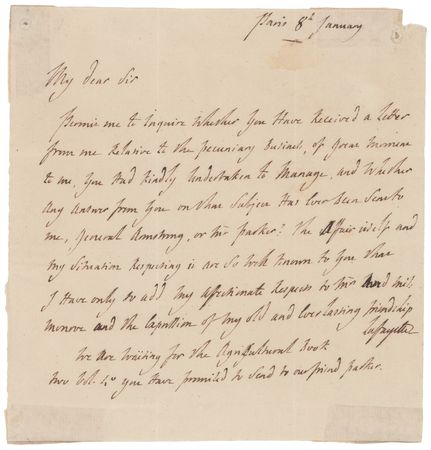 Paris 8th January
My dear Sir
Permit me to Inquire Whether You Have Received a Letter
from me Relative to the pecuniary Business, of Great Moment
to me, You Had Kindly Undertaken to Manage, and Whether
Any Answer from You on that Subject Has Ever Been Sent to
me, General Armstrong, or Mr parker? The Affair itself and
my Situation Respecting it are So Well Known to You that
I Have only to add My Affectionate Respects to Mrs and
monroe and the Expression of my old and Everlasting friendship
Lafayette
We are Waiting for the Agricultural Book
two Vol. 4o you Have promised to Send to our friend parker.